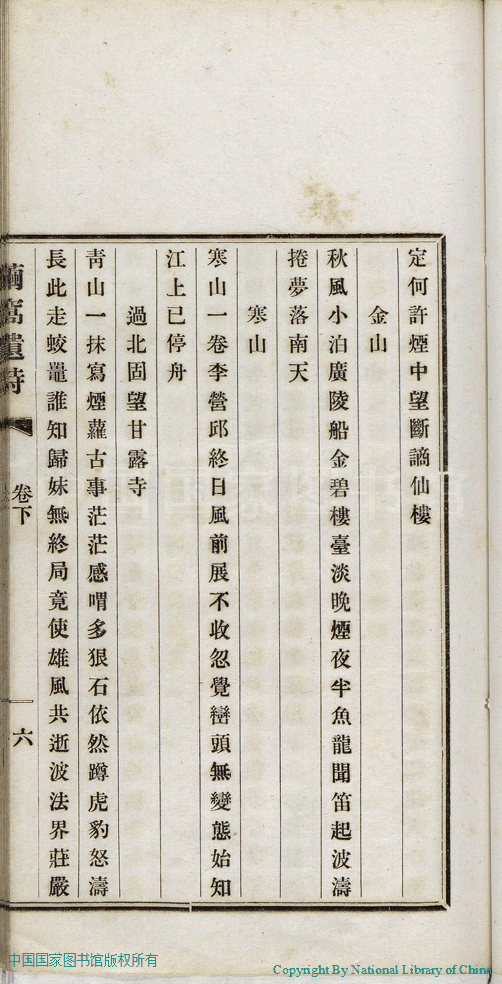 定何許煙中望斷謫仙樓
金山
秋風小泊廣陵船金碧樓臺淡晚煙夜半魚龍聞笛起波濤
捲夢落南天
寒山
寒山一卷李營邱終日風前展不收忽覺巒頭無變態始知
江上已停舟
過北固望甘露寺
青山一抹寫煙蘿古事茫茫感喟多狠石依然蹲虎豹怒濤
長此走蛟鼉誰知歸妹無終局竟使雄風共逝波法界莊嚴
窩遺詩
卷下
六
中国国家图书馆版权所有
Copyright By National Library of China